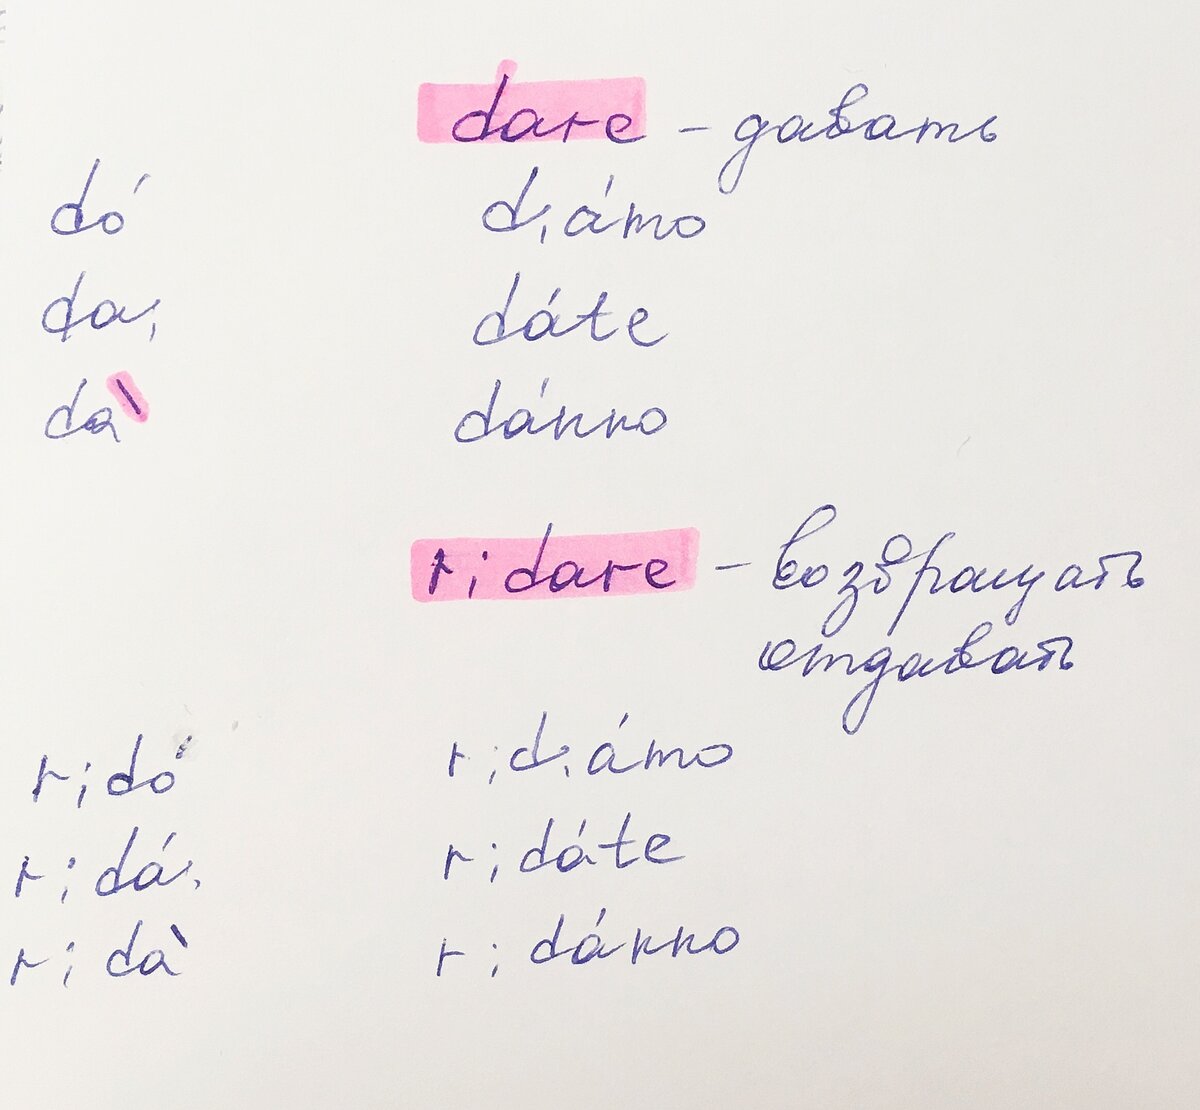 dare - давать
dó diámo
dai dáte
dà dánno
ridare - возвращать
отдавать
ridó ridiámo
ridái ridáte
ridà ridánno